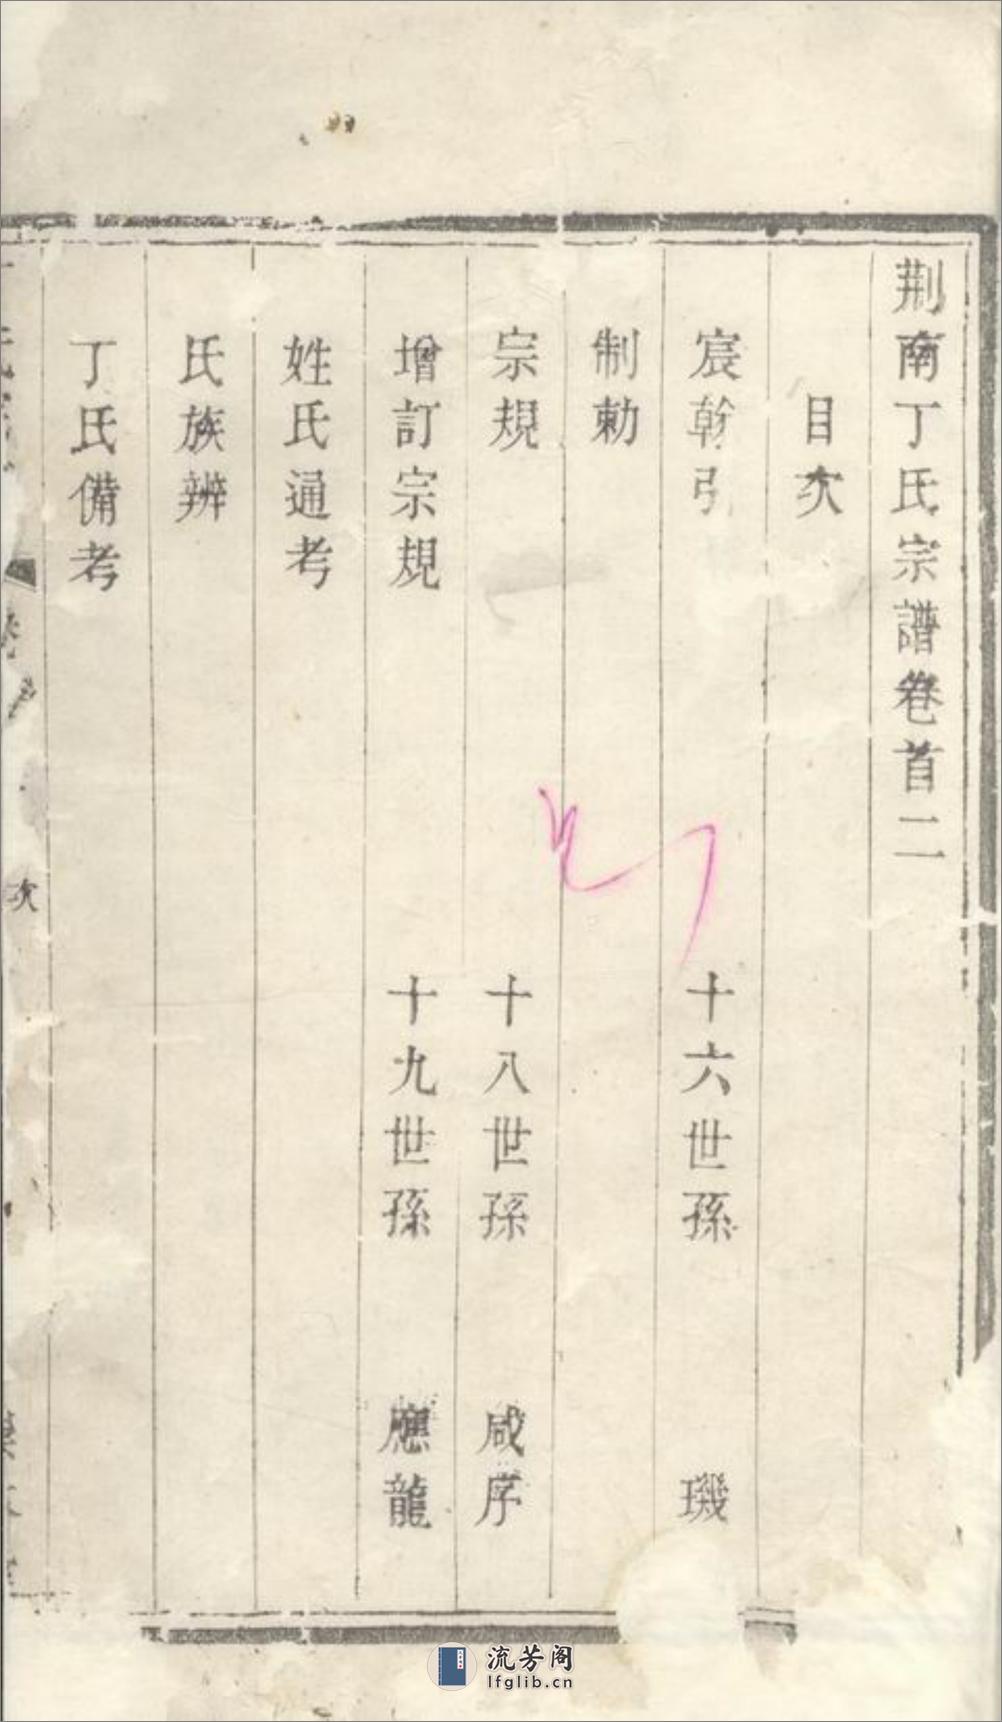 荆南丁氏宗譜卷首二
目次
宸翰引 十六世孫 璣
制勅
宗規 十八世孫 咸序
增訂宗規 十九世孫 應龍
姓氏通考
氏族辨
丁氏備考
次
流芳阁
lfglib.cn